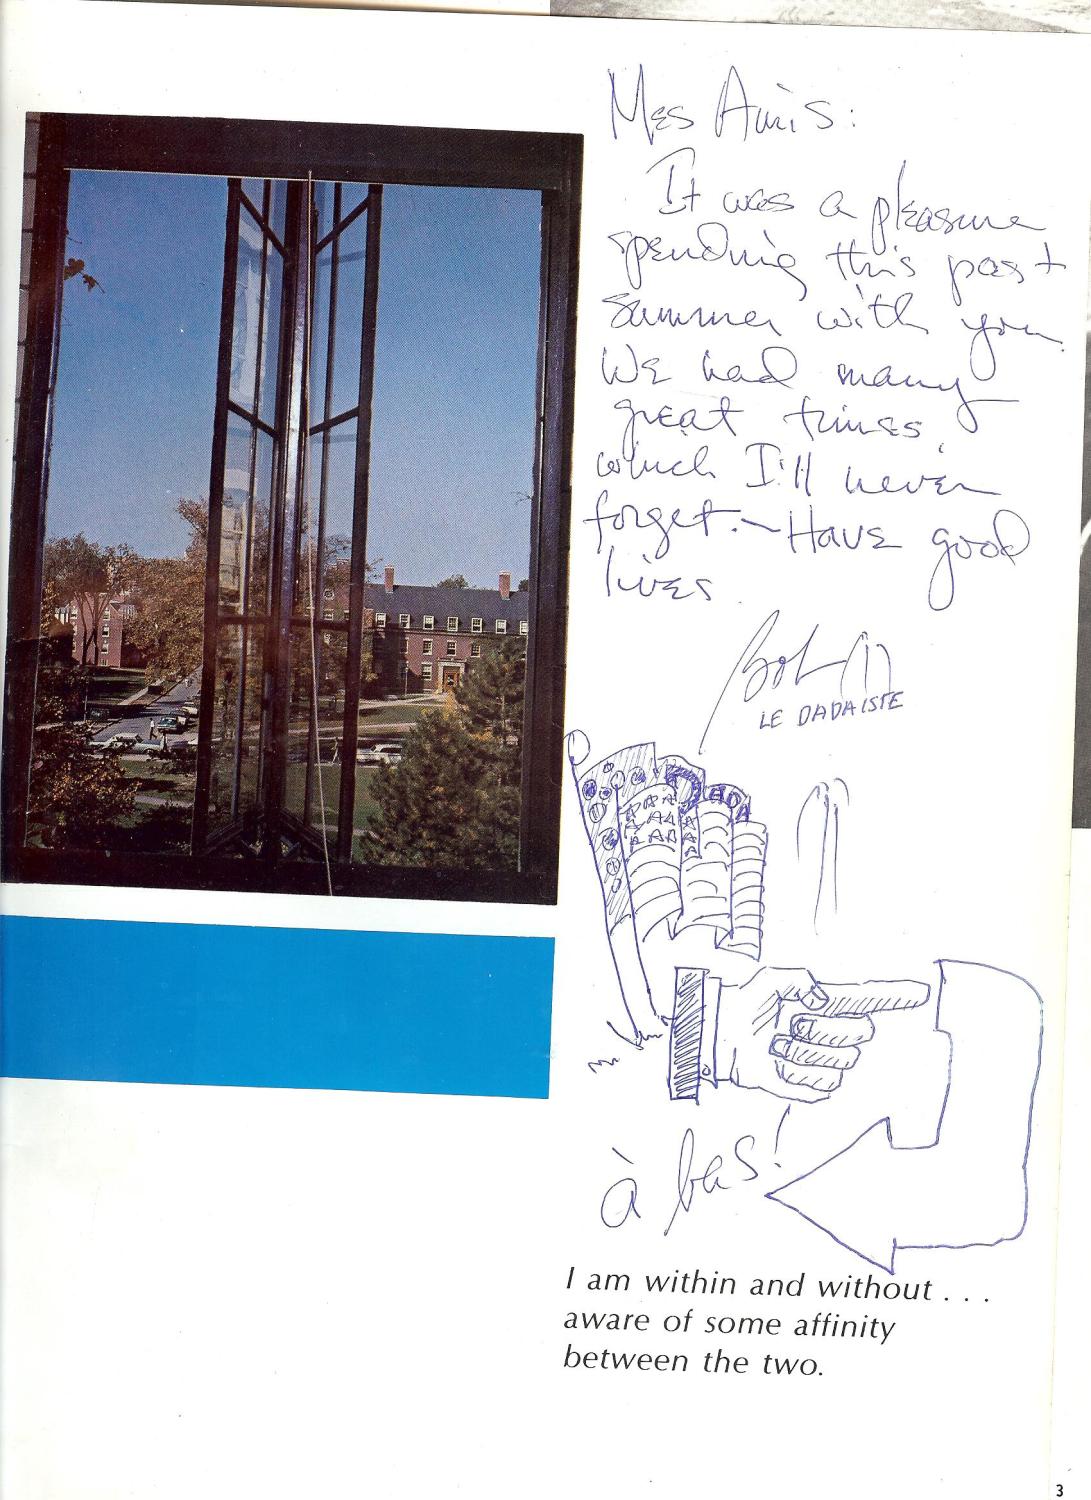 Mes Amis:
It was a pleasure
spending this past
summer with you.
We had many
great times,
which I'll never
forget. — Have good
lives
Bob
LE DADAISTE
DADA
à bas!
I am within and without . . .
aware of some affinity
between the two.
3